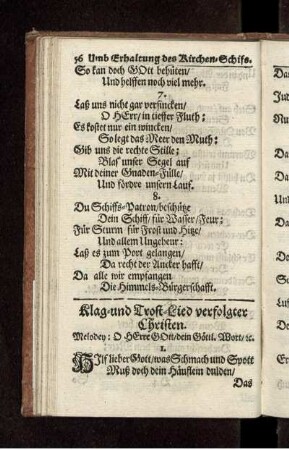 56 Umb Erhaltung des Kirchen-Schifs.
So kan doch GOtt behüten/
Und helffen noch viel mehr.
7.
Laß uns nicht gar versincken/
O HErr/ in tieffer Fluth:
Es kostet nur ein wincken/
So legt das Meer den Muth:
Gib uns die rechte Stille:
Blas' unser Segel auf
Mit deiner Gnaden-Fülle/
Und fördre unsern Lauf.
8.
Du Schiffs-Patron/ beschütze
Dein Schiff/ für Wasser/ Feur:
Für Sturm für Frost und Hitze/
Und allem Ungeheur:
Laß es zum Port gelangen/
Da recht der Ancker hafft/
Da alle wir empfangen
Die Himmels-Bürgerschafft.
Klag-und Trost-Lied verfolgter
Christen.
Melodey: O HErre GOtt/ dein Göttl. Wort/ ꝛc.
1.
HIlf lieber Gott/ was Schmach und Spott
Muß doch dein Häuflein dulden/
Das